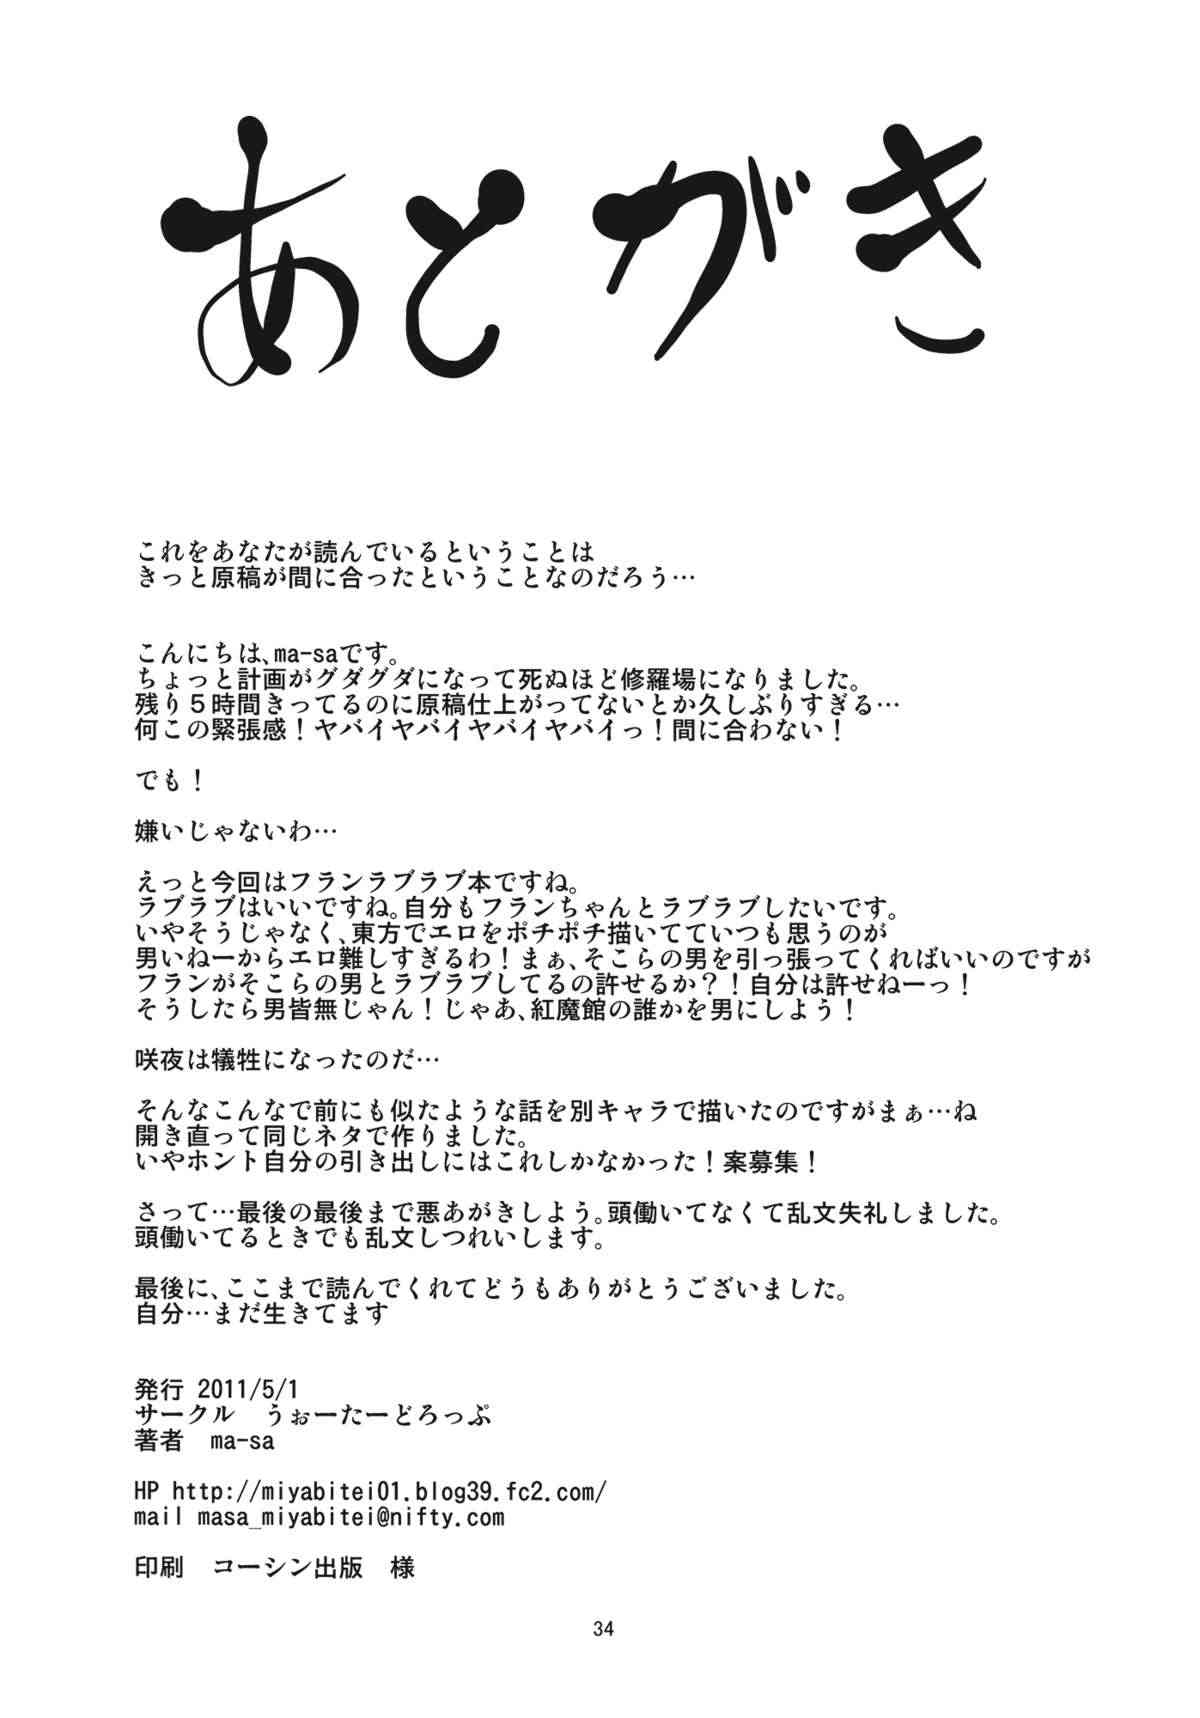 あとがき
これをあなたが読んでいるということは
きっと原稿が間に合ったということなのだろう…
こんにちは、ma-saです。
ちょっと計画がグダグダになって死ぬほど修羅場になりました。
残り５時間きってるのに原稿仕上がってないとか久しぶりすぎる…
何この緊張感！ヤバイヤバイヤバイヤバイっ！間に合わない！
でも！
嫌いじゃないわ…
えっと今回はフランラブラブ本ですね。
ラブラブはいいですね。自分もフランちゃんとラブラブしたいです。
いやそうじゃなく、東方でエロをポチポチ描いてていつも思うのが
男いねーからエロ難しすぎるわ！まぁ、そこらの男を引っ張ってくればいいのですが
フランがそこらの男とラブラブしてるの許せるか？！自分は許せねーっ！
そうしたら男皆無じゃん！じゃあ、紅魔館の誰かを男にしよう！
咲夜は犠牲になったのだ…
そんなこんなで前にも似たような話を別キャラで描いたのですがまぁ…ね
開き直って同じネタで作りました。
いやホント自分の引き出しにはこれしかなかった！案募集！
さって…最後の最後まで悪あがきしよう。頭働いてなくて乱文失礼しました。
頭働いてるときでも乱文しつれいします。
最後に、ここまで読んでくれてどうもありがとうございました。
自分…まだ生きてます
発行 2011/5/1
サークル　うぉーたーどろっぷ
著者　ma-sa
HP http://miyabitei01.blog39.fc2.com/
mail masa_miyabitei@nifty.com
印刷　コーシン出版　様
34